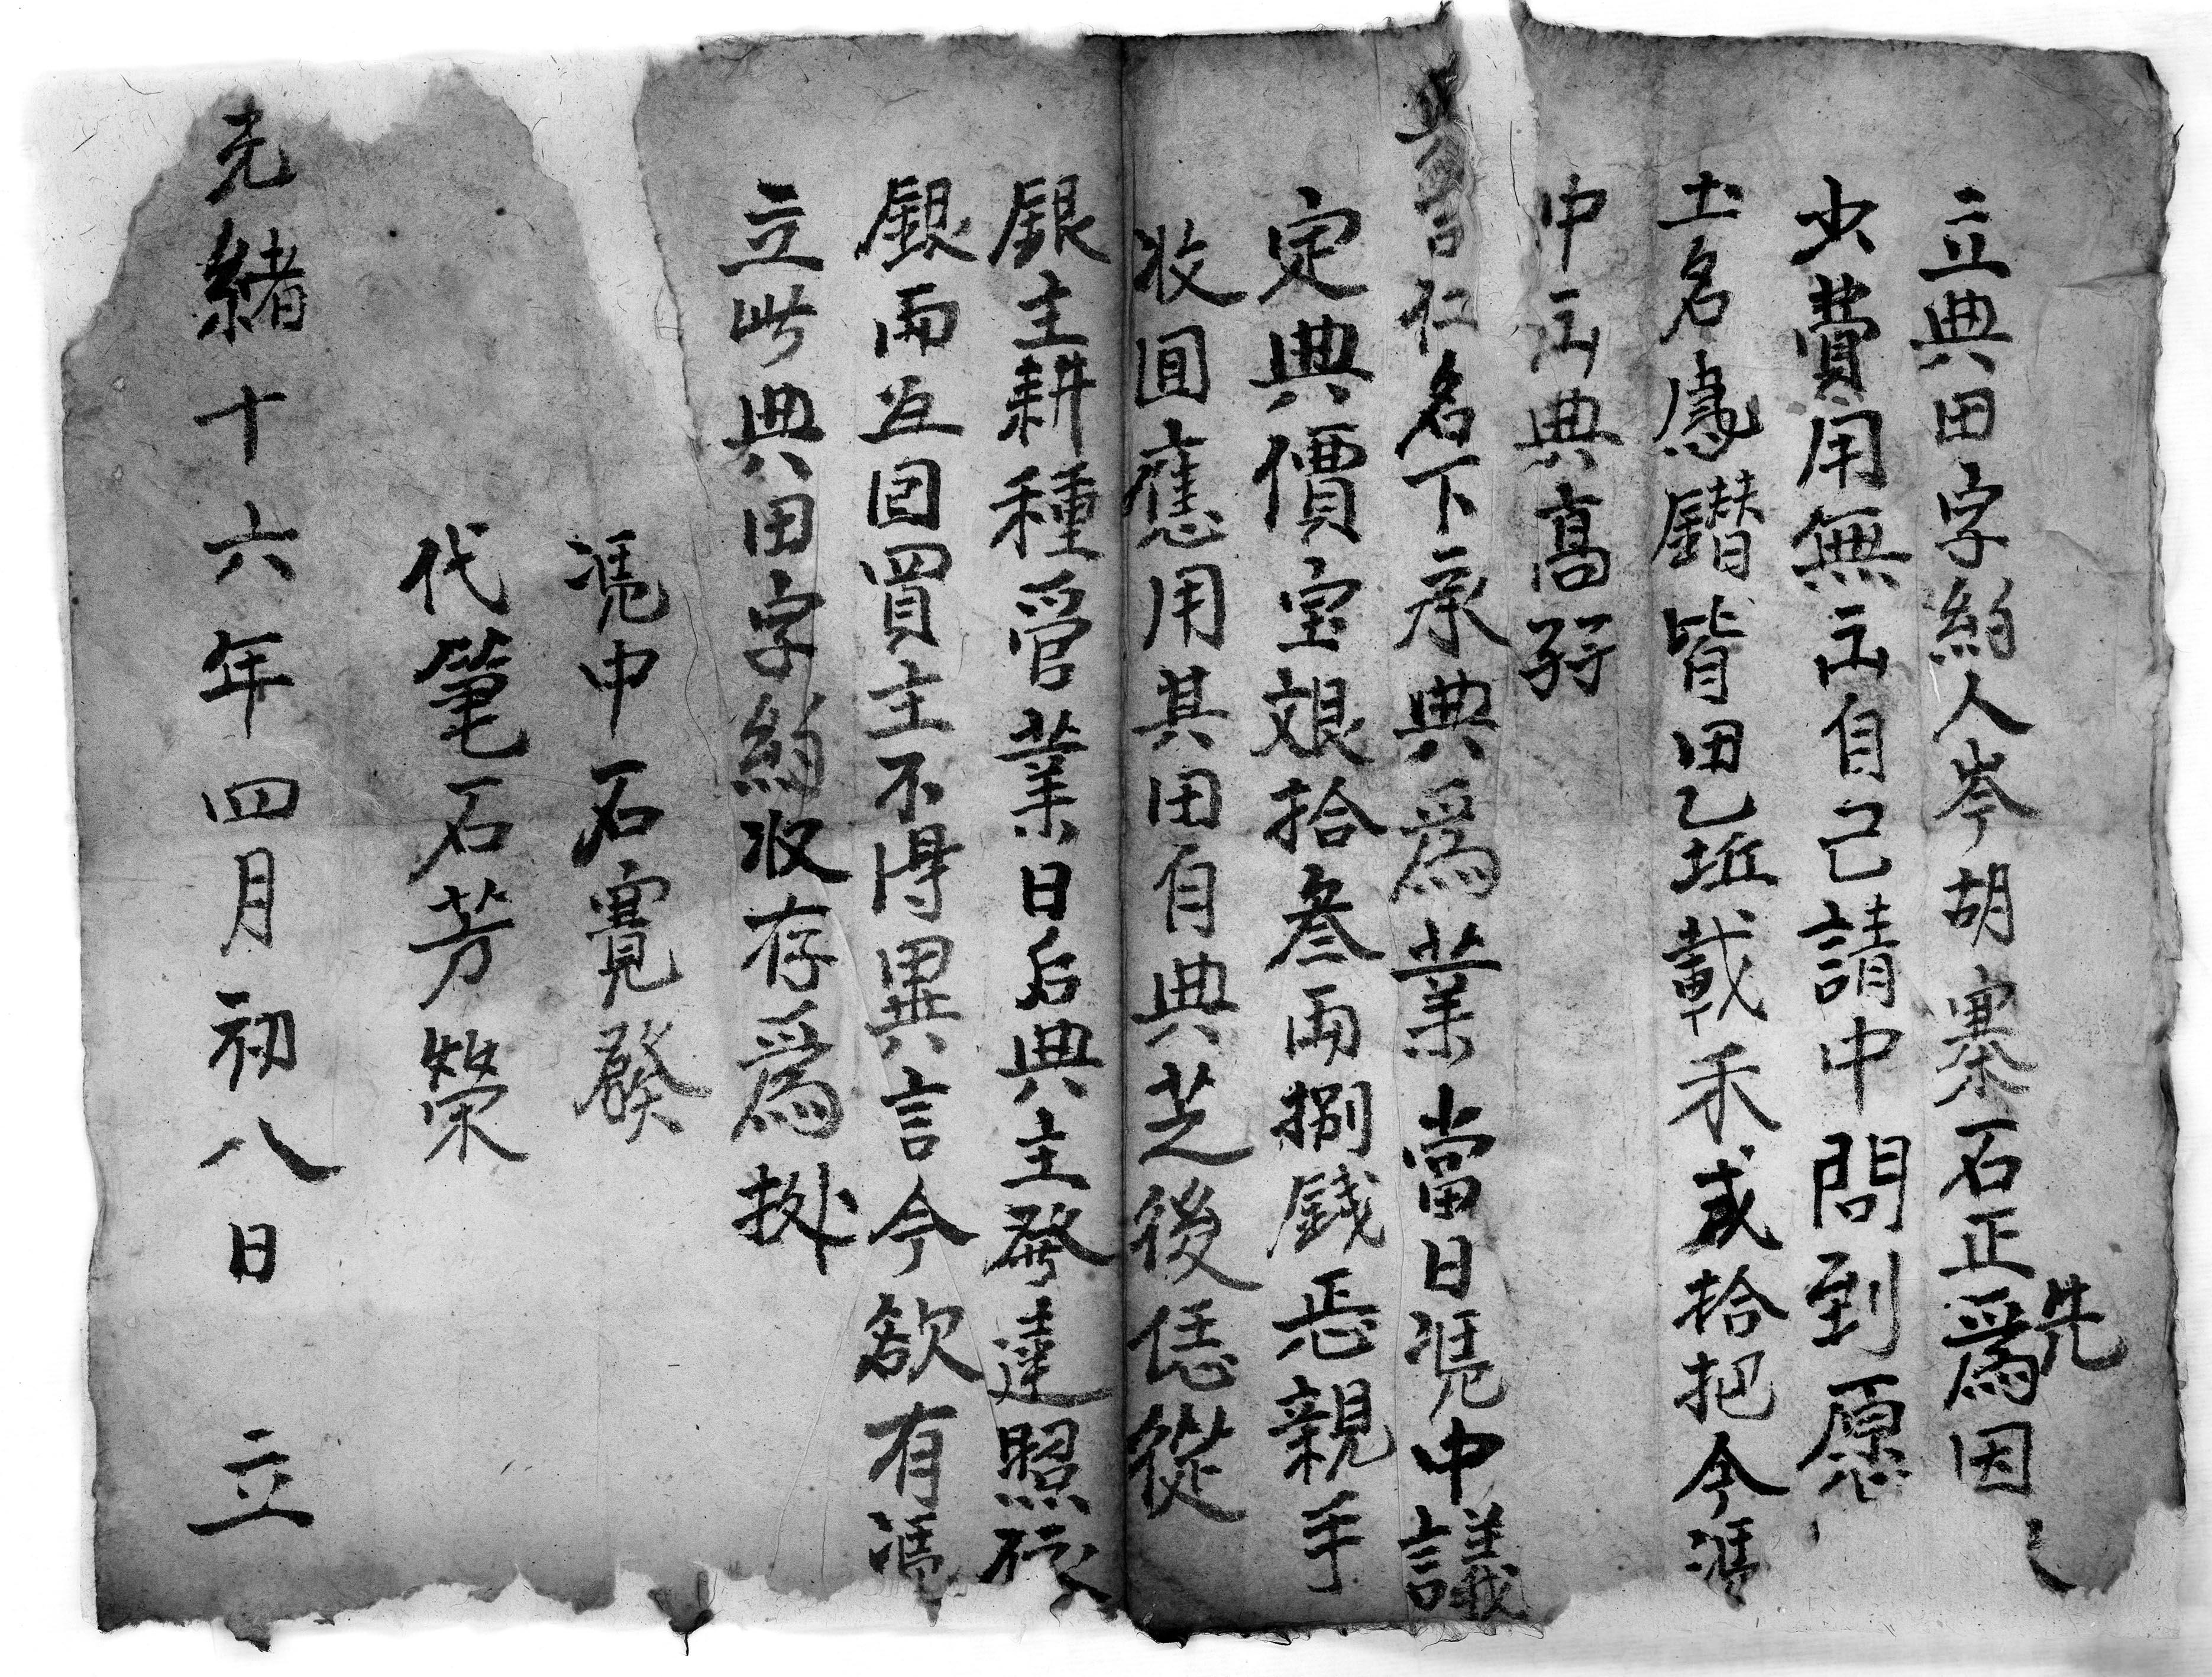 立典田字約人岑胡寨石正為因
先
少費用無出自己請中問到愿
土名為鐕皆田乙坵載禾貳拾把今憑
中出典高
仁名下承典為業當日凴中議
定典價艮拾叁両捌錢恁親手
收囬應用其田自典芝後恁從
銀主耕種管業日后典主發達照
銀両囬買主不得異言今欲有凴
立此典田字約收存為拠
凴中石寬發
代筆石芳榮
光緒十六年四月初八日 立